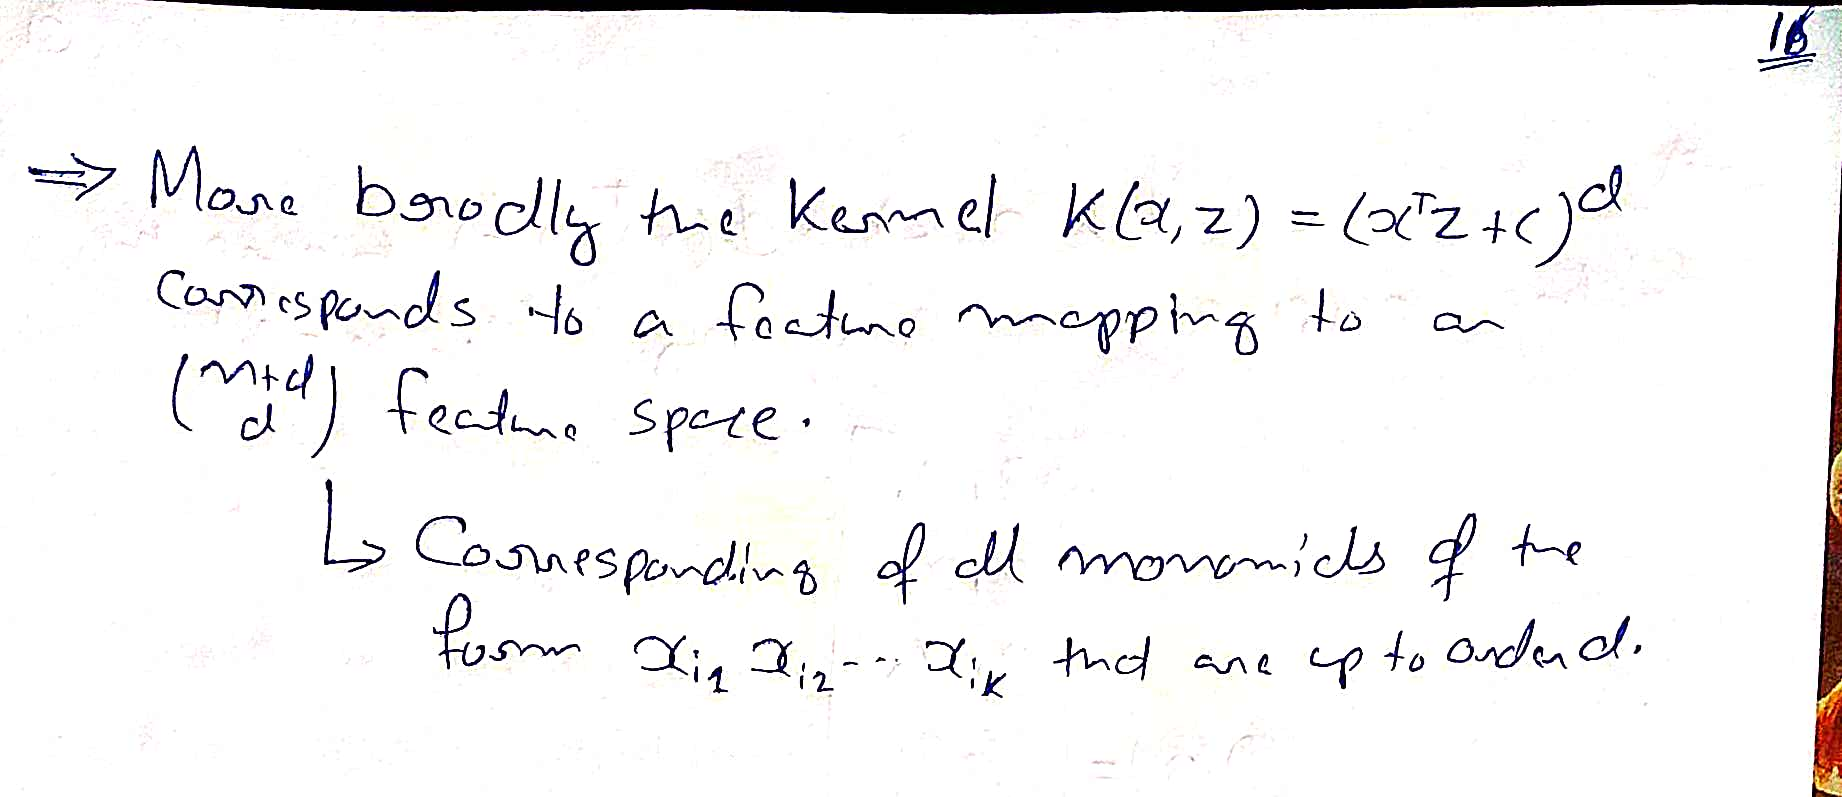 16
⇒ More brodly the Kernel K(x, z) = (xᵀz + c)ᵈ
corresponds to a feature mapping to an
(n+d d) feature space.
↳ Corresponding of all monomials of the
form xi1 xi2 -- xik that are up to order d.